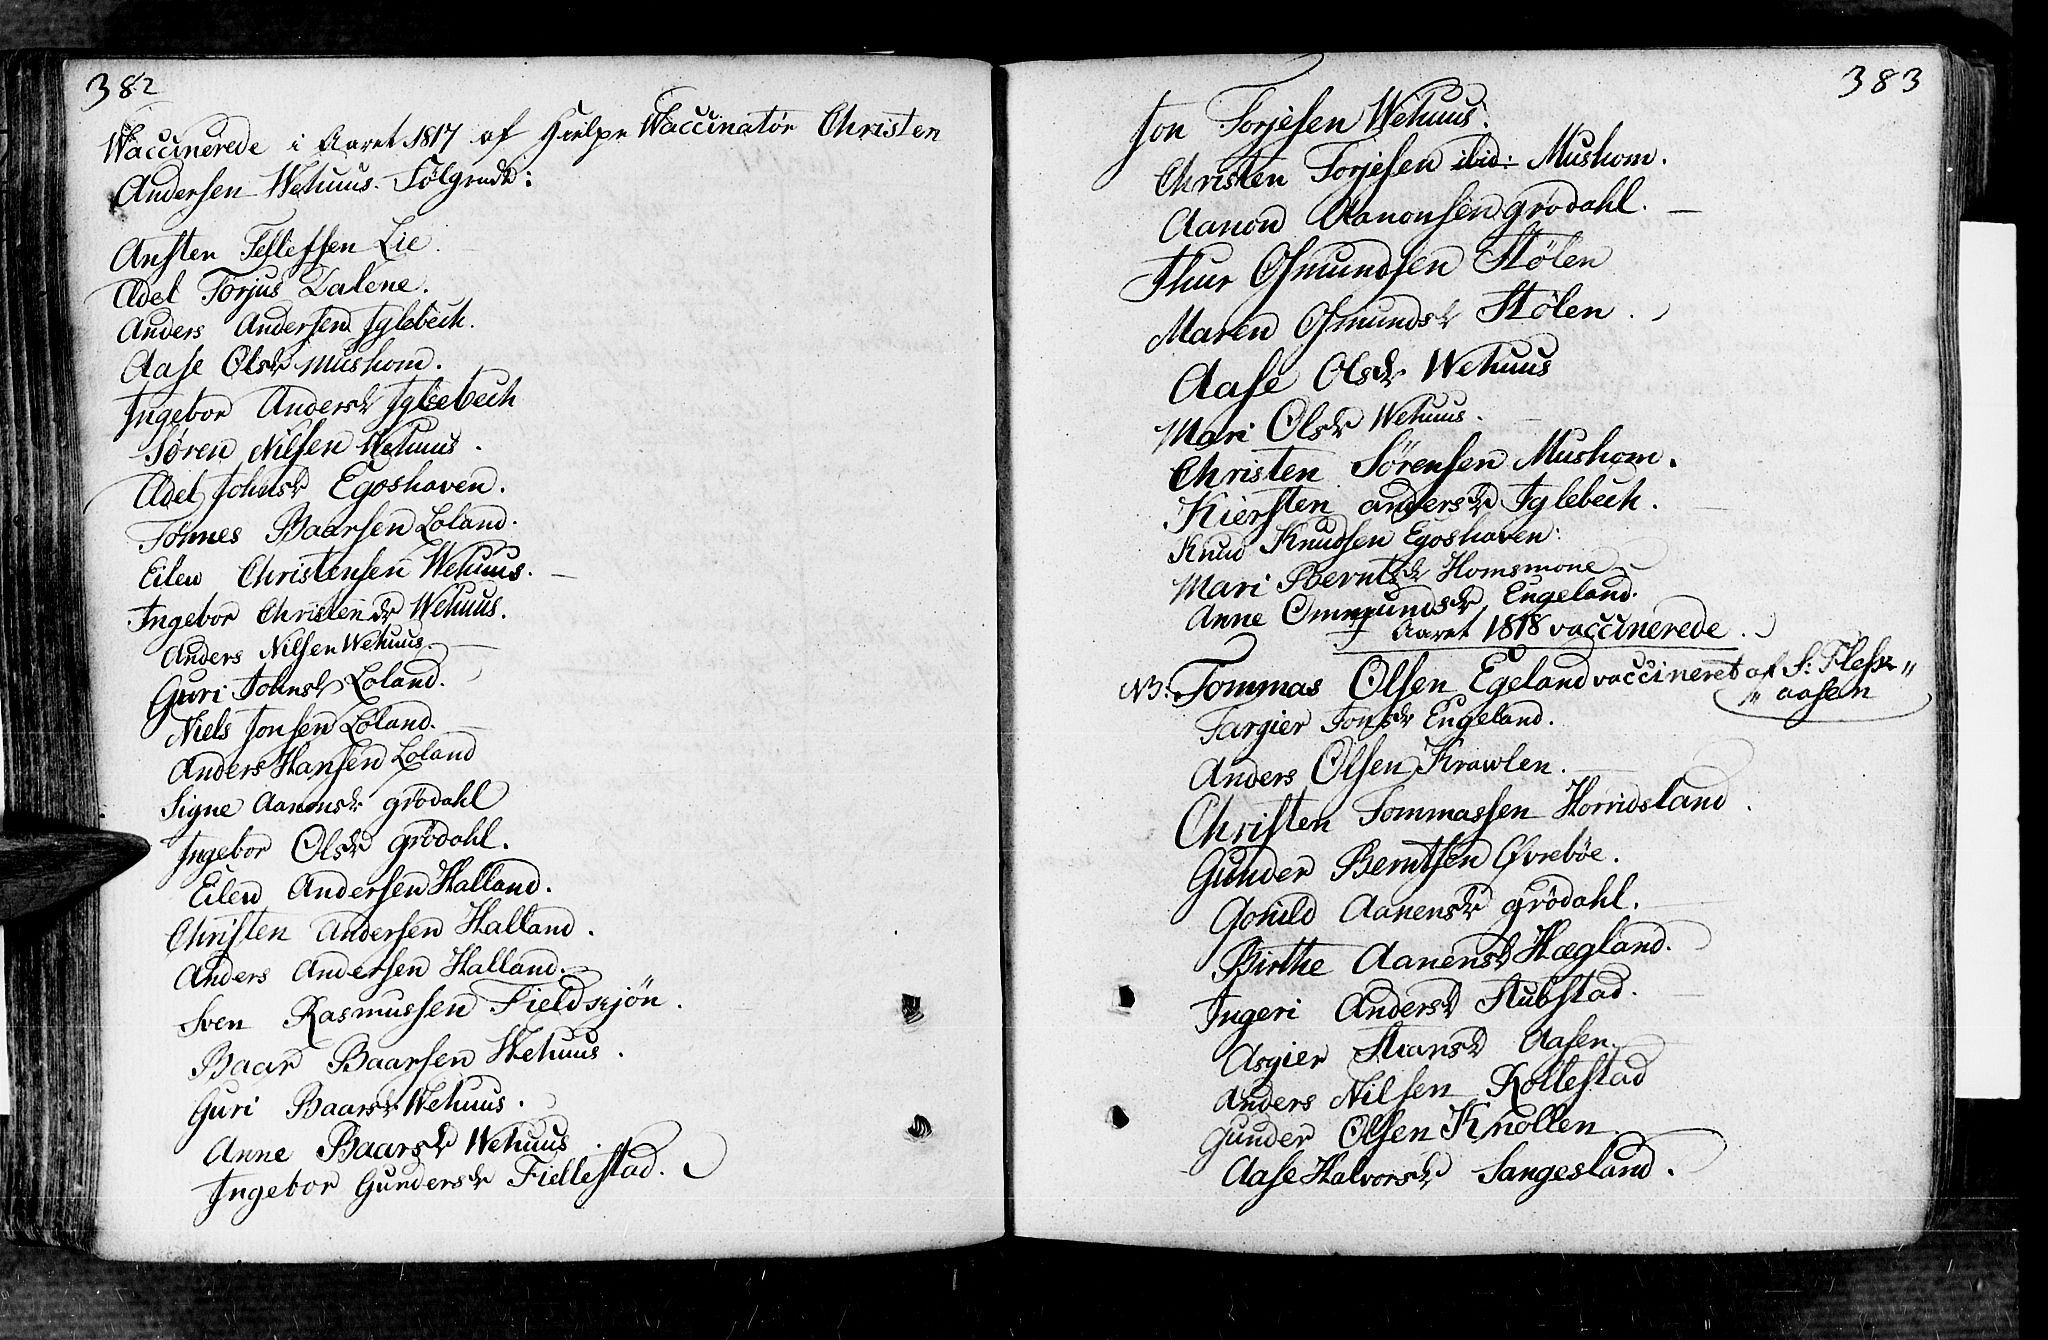 382
Waccinerede i Aaret 1817 af Hielpe Waccinatør Christen
Andersen Wehuus. Følgende:
Ansten Tellefsen Lie.
Adel Torjus Dalene.
Anders Andersen Iglebech.
Aase Olsdr Mushom.
Ingebor Andersdr Iglebech
Søren Nilsen Wehuus.
Adel Johnsdr Egoshaven.
Tønnes Baarsen Loland.
Eilew Christensen Wehuus.
Ingebor Christendr Wehuus.
Anders Nilsen Wehuus.
Guri Johnsdr Loland.
Niels Jonsen Loland.
Anders Hansen Loland
Signe Aanensdr Grødahl
Ingebor Olsdr Grødahl.
Eilew Andersen Halland.
Christen Andersen Halland.
Anders Andersen Halland.
Sven Rasmussen Fieldskjøn.
Baar Baarsen Wehuus.
Guri Baarsdr Wehuus.
Anne Baarsdr Wehuus.
Ingebor Gundersdr Fiellestad.
383
Jon Torjesen Wehuus.
Christen Torjesen ibid: Mushom.
Aanon Aanonsen Grødahl.
Thur Osmundsen Stølen
Maren Osmundsdr Stølen.
Aase Olsdr Wehuus
Mari Olsdr Wehuus.
Christen Sørensen Mushom.
Kiersten Andersdr Iglebech.
Knud Knudsen Egoshaven:
Mari Berntsdr Homsmone
Anne Ommundsdr Engeland.
I Aaret 1818 vaccinerede.
NB: Tommas Olsen Egeland vaccineret af S: Flesk"
" aasen
Targier Jonsdr Engeland.
Anders Olsen Krawlen.
Christen Tommassen Horridsland.
Gunder Berntsen Øvrebøe.
Gonild Aanensdr Grødahl.
Birthe Aanensdr Hægland.
Ingeri Andersdr Stubstad.
Asgier Stiansdr Aasen.
Anders Nilsen Rollestad
Gunder Olsen Knollen.
Aase Halvorsdr Sangesland.